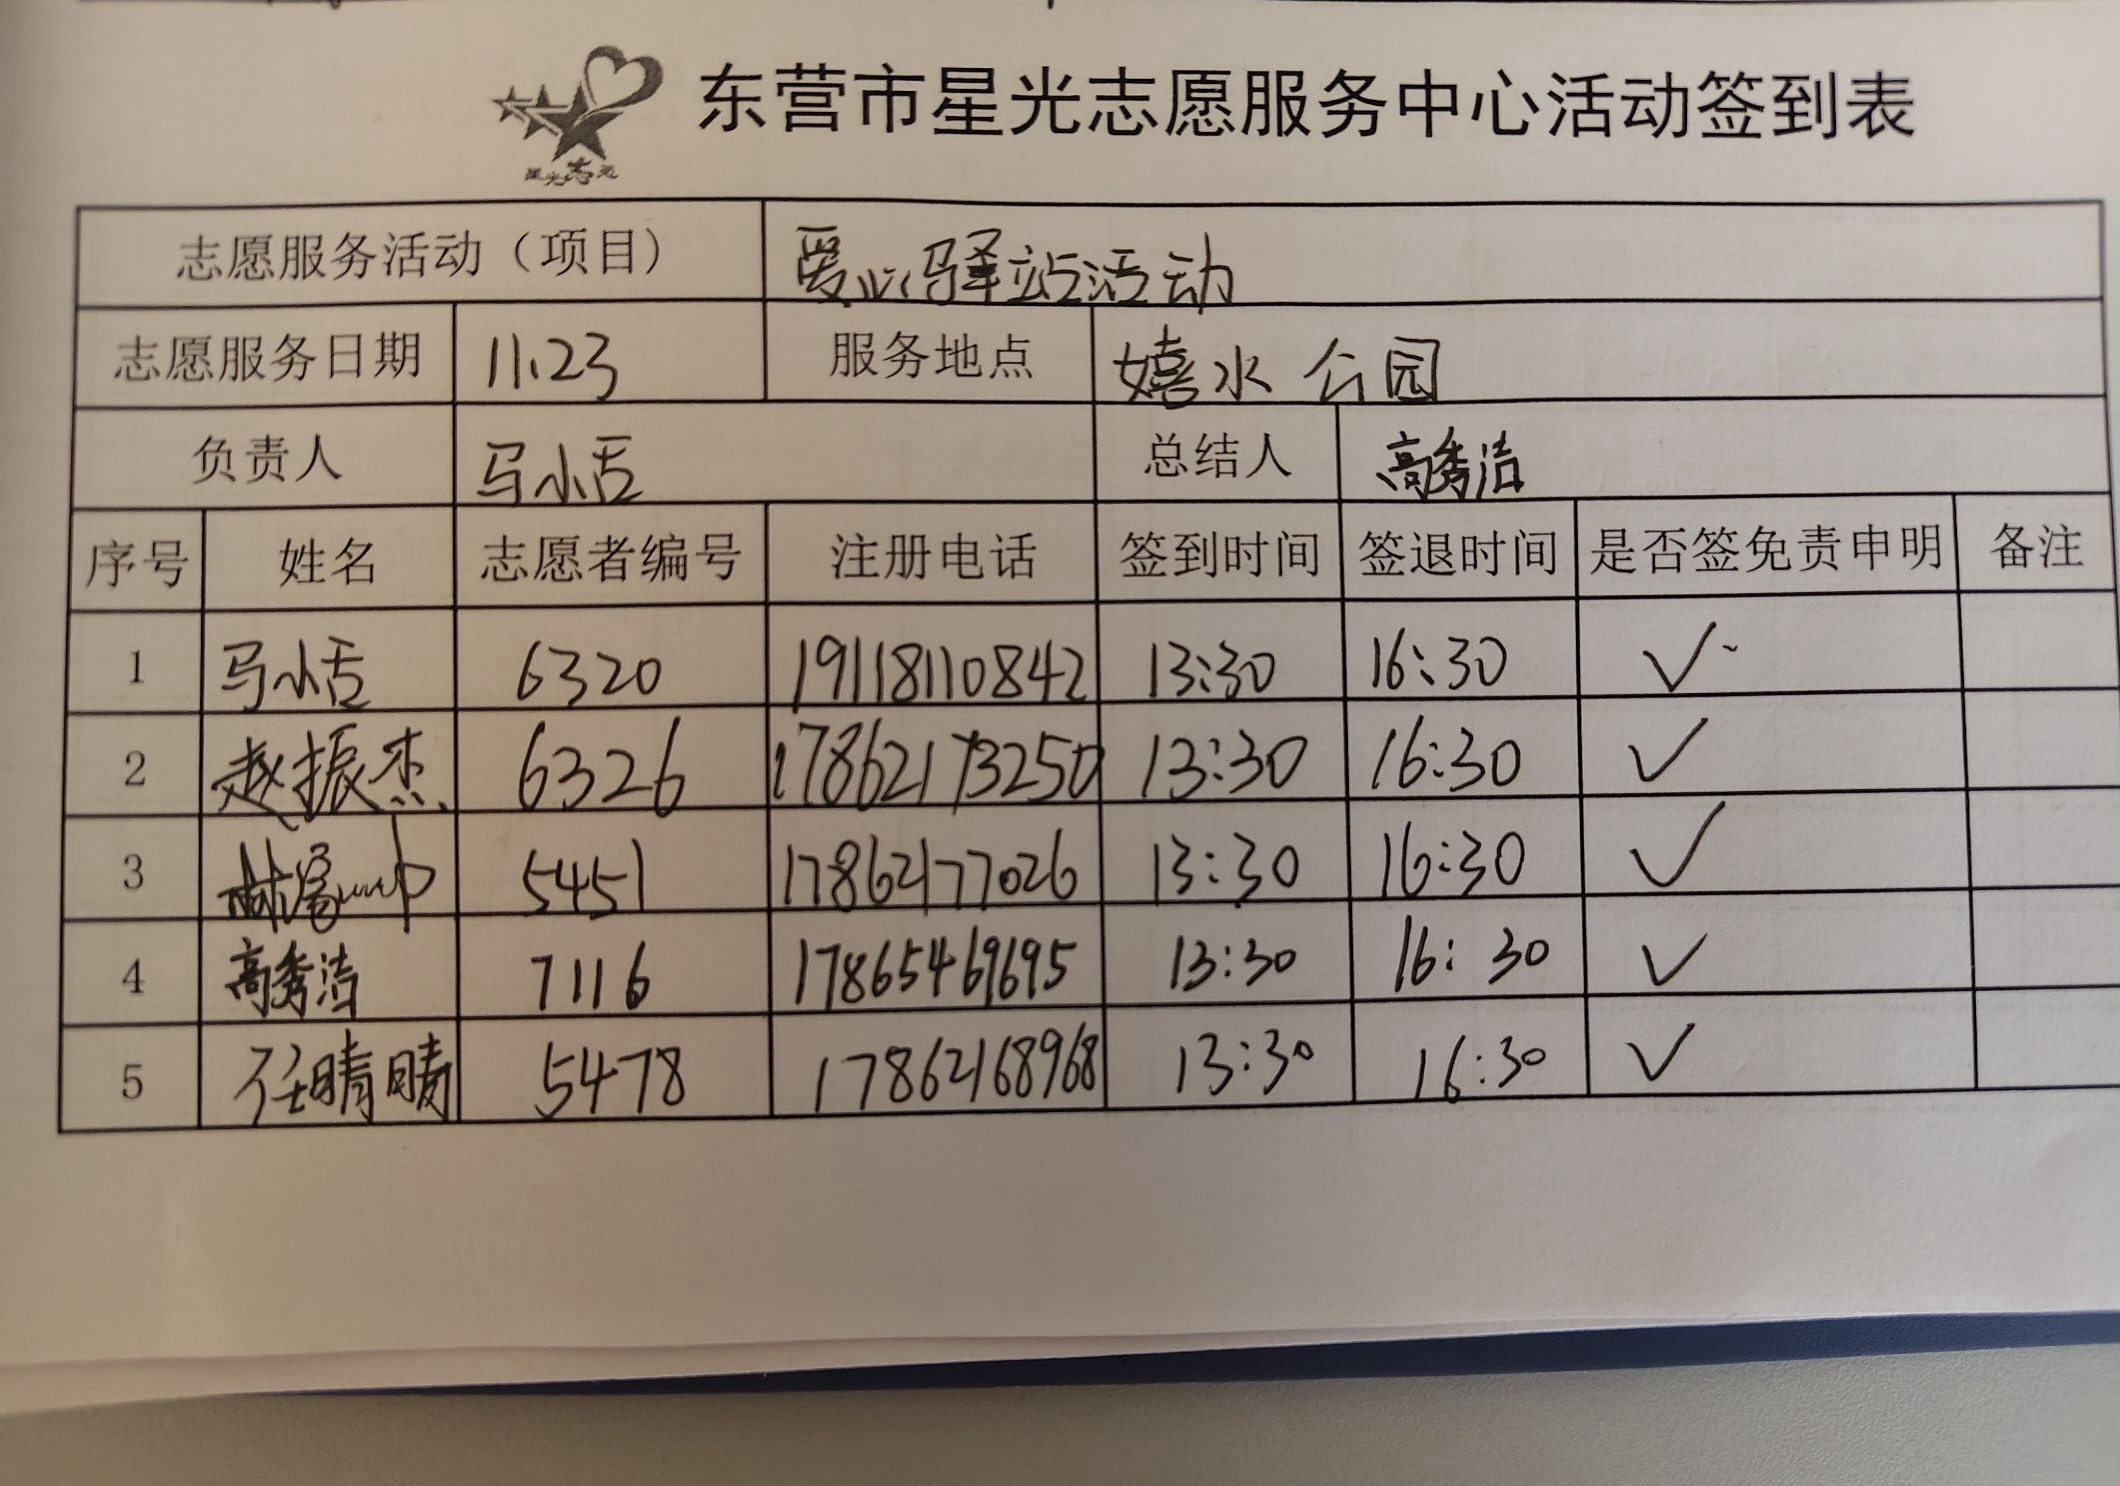 星光志愿
东营市星光志愿服务中心活动签到表
志愿服务活动（项目） 爱心驿站活动
志愿服务日期 11.23 服务地点 嬉水公园
负责人 马小舌 总结人 高秀洁
序号 姓名 志愿者编号 注册电话 签到时间 签退时间 是否签免责申明 备注
1 马小舌 6320 19118110842 13:30 16:30 ✓
2 赵振杰 6326 17862173250 13:30 16:30 ✓
3 5451 17862177026 13:30 16:30 ✓
4 高秀洁 7116 17865469695 13:30 16:30 ✓
5 任晴晴 5478 17862168968 13:30 16:30 ✓